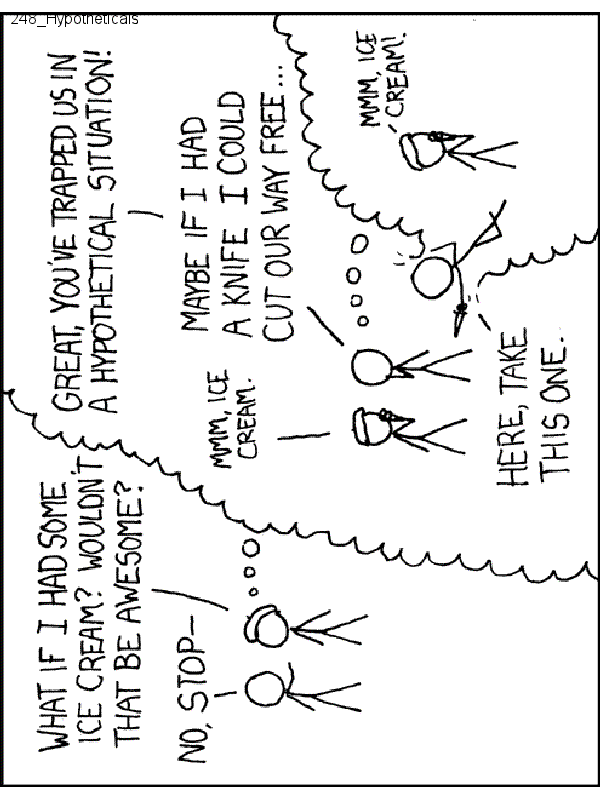 248_Hypotheticals
WHAT IF I HAD SOME
ICE CREAM? WOULDN'T
THAT BE AWESOME?
NO, STOP—
GREAT, YOU'VE TRAPPED US IN
A HYPOTHETICAL SITUATION!
MMM, ICE
CREAM.
MAYBE IF I HAD
A KNIFE I COULD
CUT OUR WAY FREE...
MMM, ICE
CREAM!
HERE, TAKE
THIS ONE.